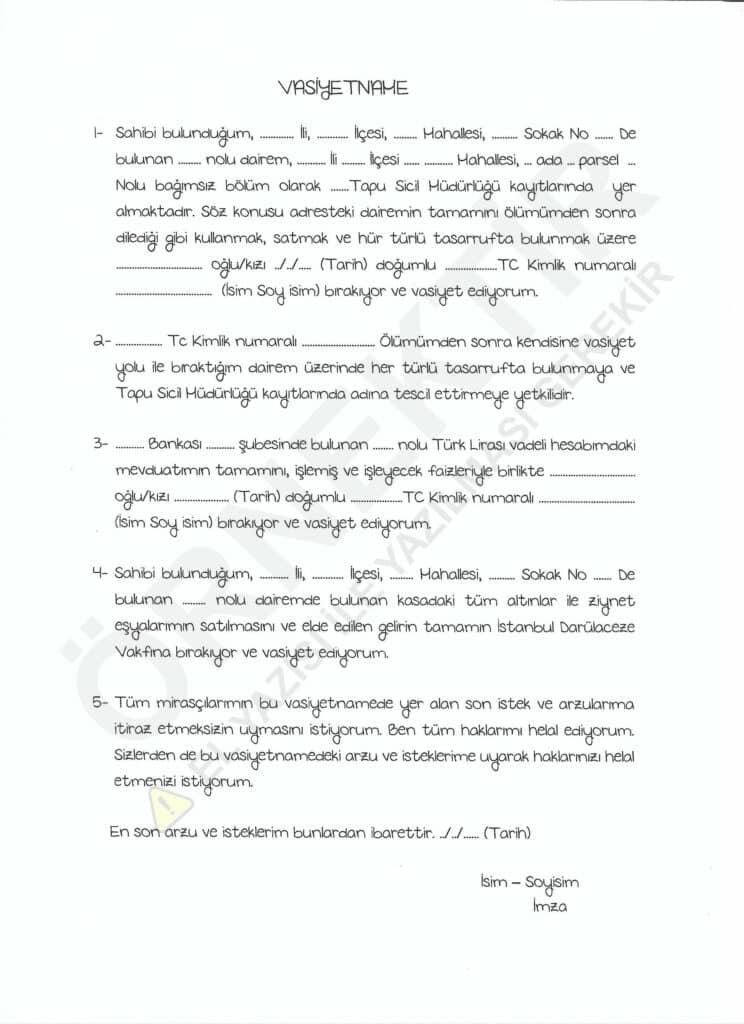 VASİYETNAME
1- Sahibi bulunduğum, ............. İli, ............ İlçesi, ......... Mahallesi, .......... Sokak No ....... De
bulunan ......... nolu dairem, ........... İli ......... İlçesi ...... ........... Mahallesi, ... ada ... parsel ...
Nolu bağımsız bölüm olarak .......Tapu Sicil Müdürlüğü kayıtlarında yer
almaktadır. Söz konusu adresteki dairemin tamamını ölümümden sonra
dilediği gibi kullanmak, satmak ve hür türlü tasarrufta bulunmak üzere
................................. oğlu/kızı ../../..... (Tarih) doğumlu ....................TC Kimlik numaralı
..................................... (İsim Soy isim) bırakıyor ve vasiyet ediyorum.
2- .................. Tc Kimlik numaralı ............................ Ölümümden sonra kendisine vasiyet
yolu ile bıraktığım dairem üzerinde her türlü tasarrufta bulunmaya ve
Tapu Sicil Müdürlüğü kayıtlarında adına tescil ettirmeye yetkilidir.
3- ........... Bankası ........... şubesinde bulunan ........ nolu Türk Lirası vadeli hesabımdaki
mevduatımın tamamını, işlemiş ve işleyecek faizleriyle birlikte .................................
oğlu/kızı ..................... (Tarih) doğumlu ....................TC Kimlik numaralı .....................................
(İsim Soy isim) bırakıyor ve vasiyet ediyorum.
4- Sahibi bulunduğum, ........... İli, ............ İlçesi, ......... Mahallesi, .......... Sokak No ....... De
bulunan ......... nolu dairemde bulunan kasadaki tüm altınlar ile ziynet
eşyalarımın satılmasını ve elde edilen gelirin tamamın İstanbul Darülaceze
Vakfına bırakıyor ve vasiyet ediyorum.
5- Tüm mirasçılarımın bu vasiyetnamede yer alan son istek ve arzularıma
itiraz etmeksizin uymasını istiyorum. Ben tüm haklarımı helal ediyorum.
Sizlerden de bu vasiyetnamedeki arzu ve isteklerime uyarak haklarınızı helal
etmenizi istiyorum.
En son arzu ve isteklerim bunlardan ibarettir. ../../...... (Tarih)
İsim – Soyisim
İmza
ÖRNEKTİR
EL YAZISI İLE YAZILMASI GEREKİR